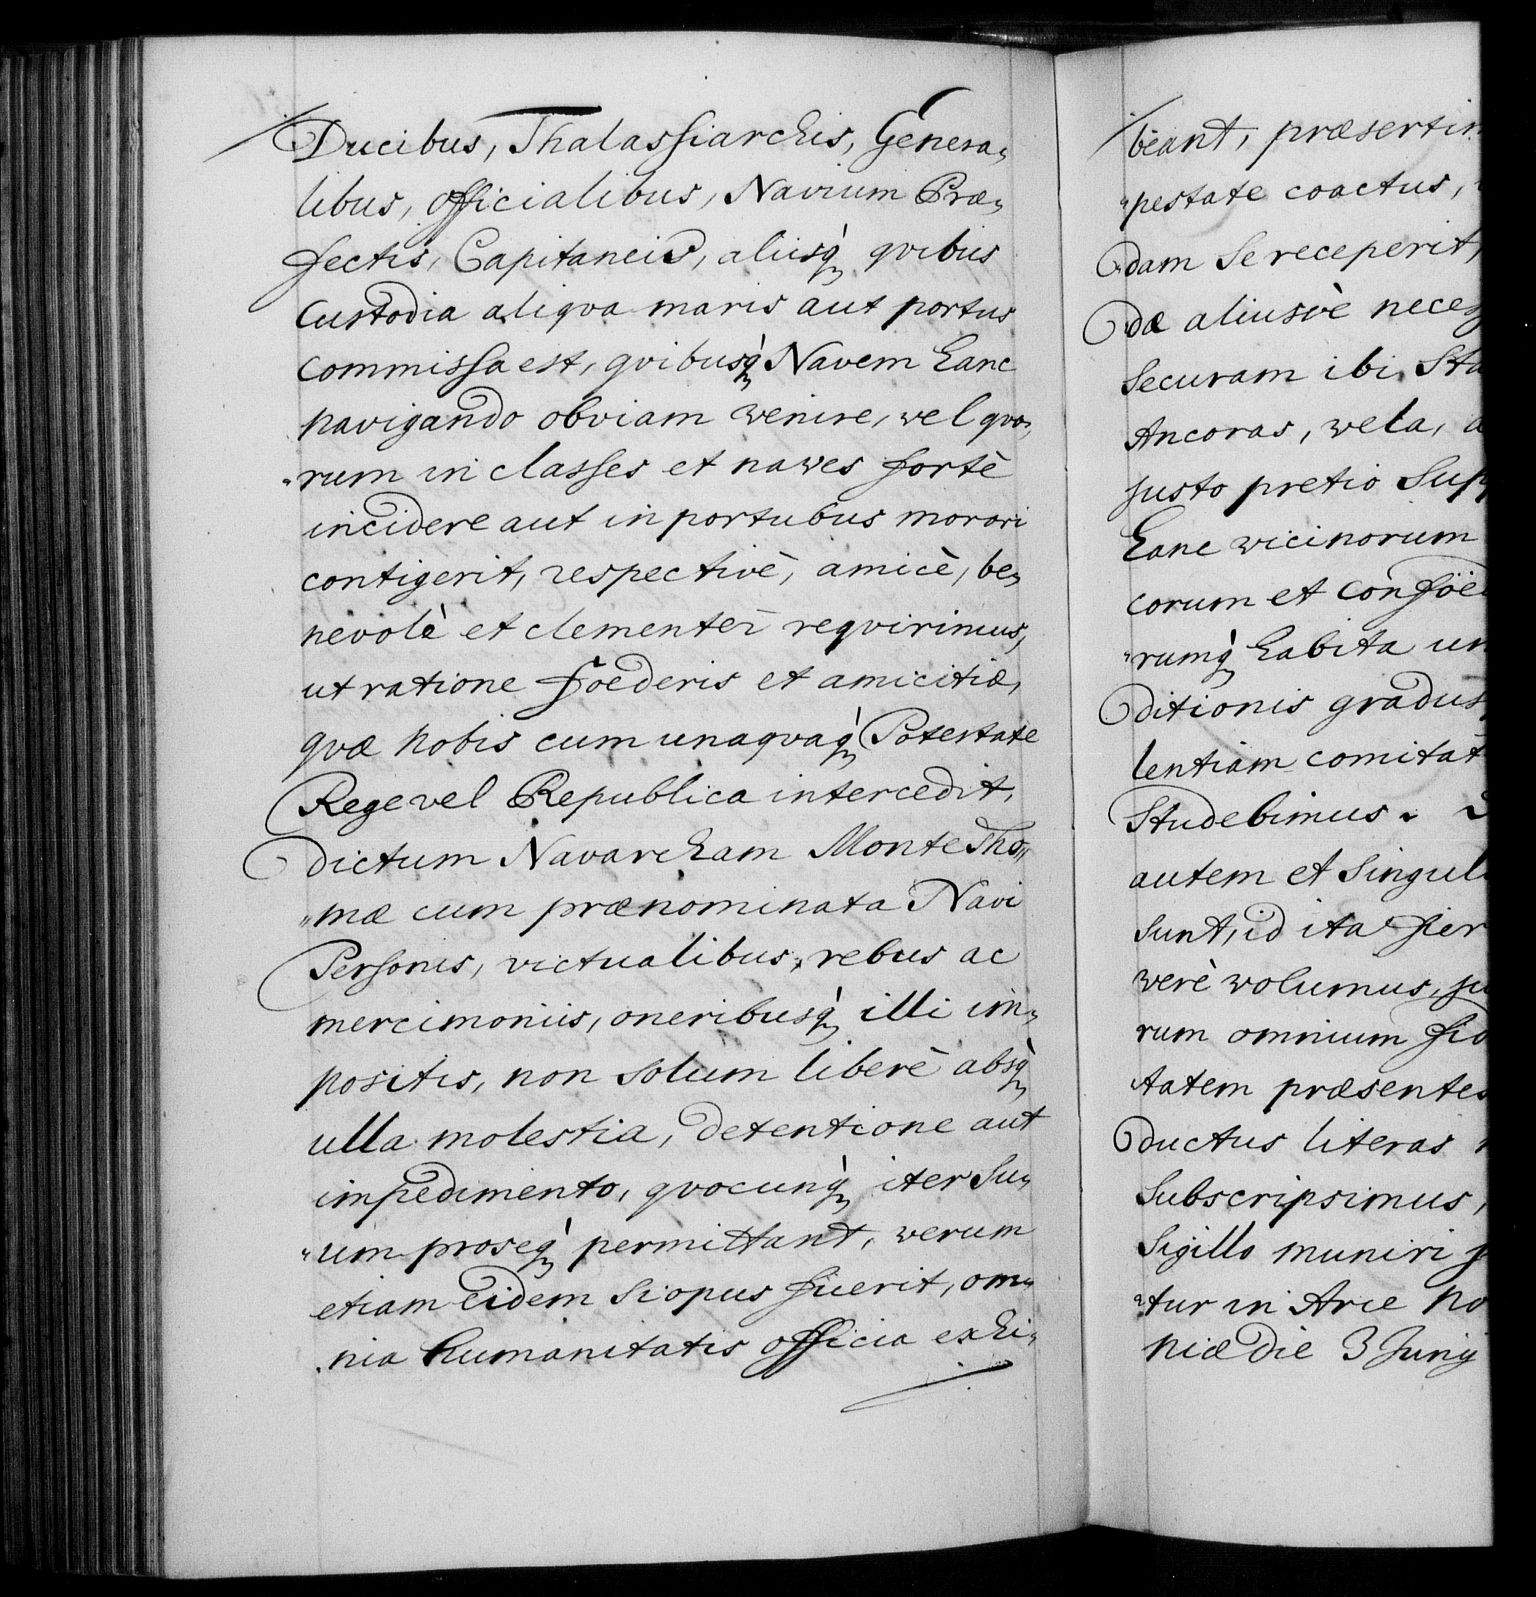 Ducibus, Thalassiarchis, Genera„
libus, officialibus, Navium Præ„
fectis, Capitaneis, aliisq́ qvibus
Custodia aliqva maris aut portus
commissa est, qvibusq́ Navem hanc
navigando obviam venire, vel qvo„
„rum in classes et naves fortè
incidere aut in portubus morari
contigerit, respectivè, amicè, be„
nevolè et clementer reqvirimus,
ut ratione foederis et amicitiæ,
qvæ nobis cum unaqvaq́ Potestate
Rege vel Republica intercedit,
dictum Navarcham Monte Tho„
„mæ cum prænominata Navi
Personis, victualibus, rebus ac
mercimoniis, oneribusq́ illi im„
positis, non solum liberè absq́
ulla molestia, detentione aut
impedimento, qvocunq́ iter su„
„um proseq́ permittant, verum
etiam eidem si opus fuerit, om„
„nia humanitatis officia exhi„
beant, præsertim
„pestate coactus,
dam se receperit,
dæ aliusvè neces
securam ibi Sta
Ancoras, vela, a
justo pretio Sup
hanc vicinorum
corum et confoe
„rumq́ habita
ditionis gradus
lentiam comitat
studebimus.
autem et singul
sunt, id ita fier
verè volumus,
rum omnium fid
tatem præsentes
ductus literas
subscripsimus,
sigillo muniri
„tur in Arce
niæ die 3 Junij